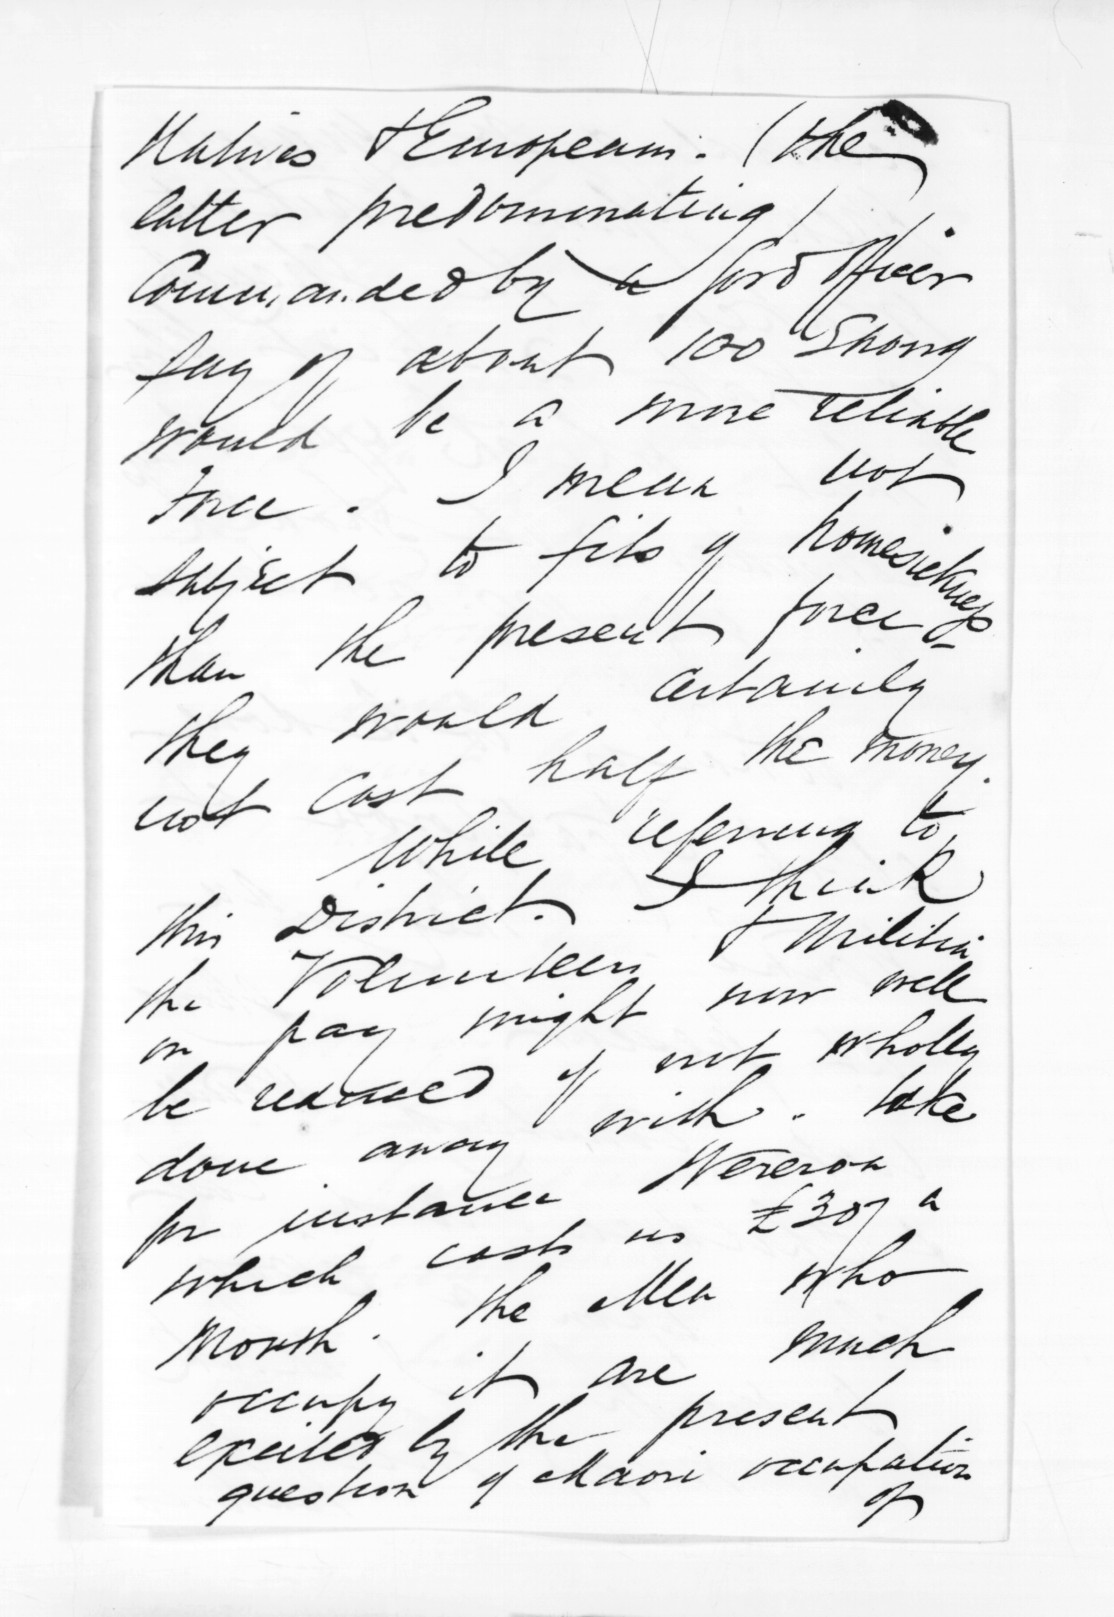 Natives & Europeans. (the
latter predominating)
Commanded by a good officer
say of about 100 Strong
would be a more reliable
Force. I mean not
subject to fits of homesickness
than the present force -
they would certainly
not cost half the money.
While referring to
this District. I think
the Volunteers & Militia
on pay might now well
be reduced if not wholly
done away with. take
for instance Wereroa
which costs us £307 a
Month. the Men who
occupy it are much
excited by the present
question of Maori occupation
of